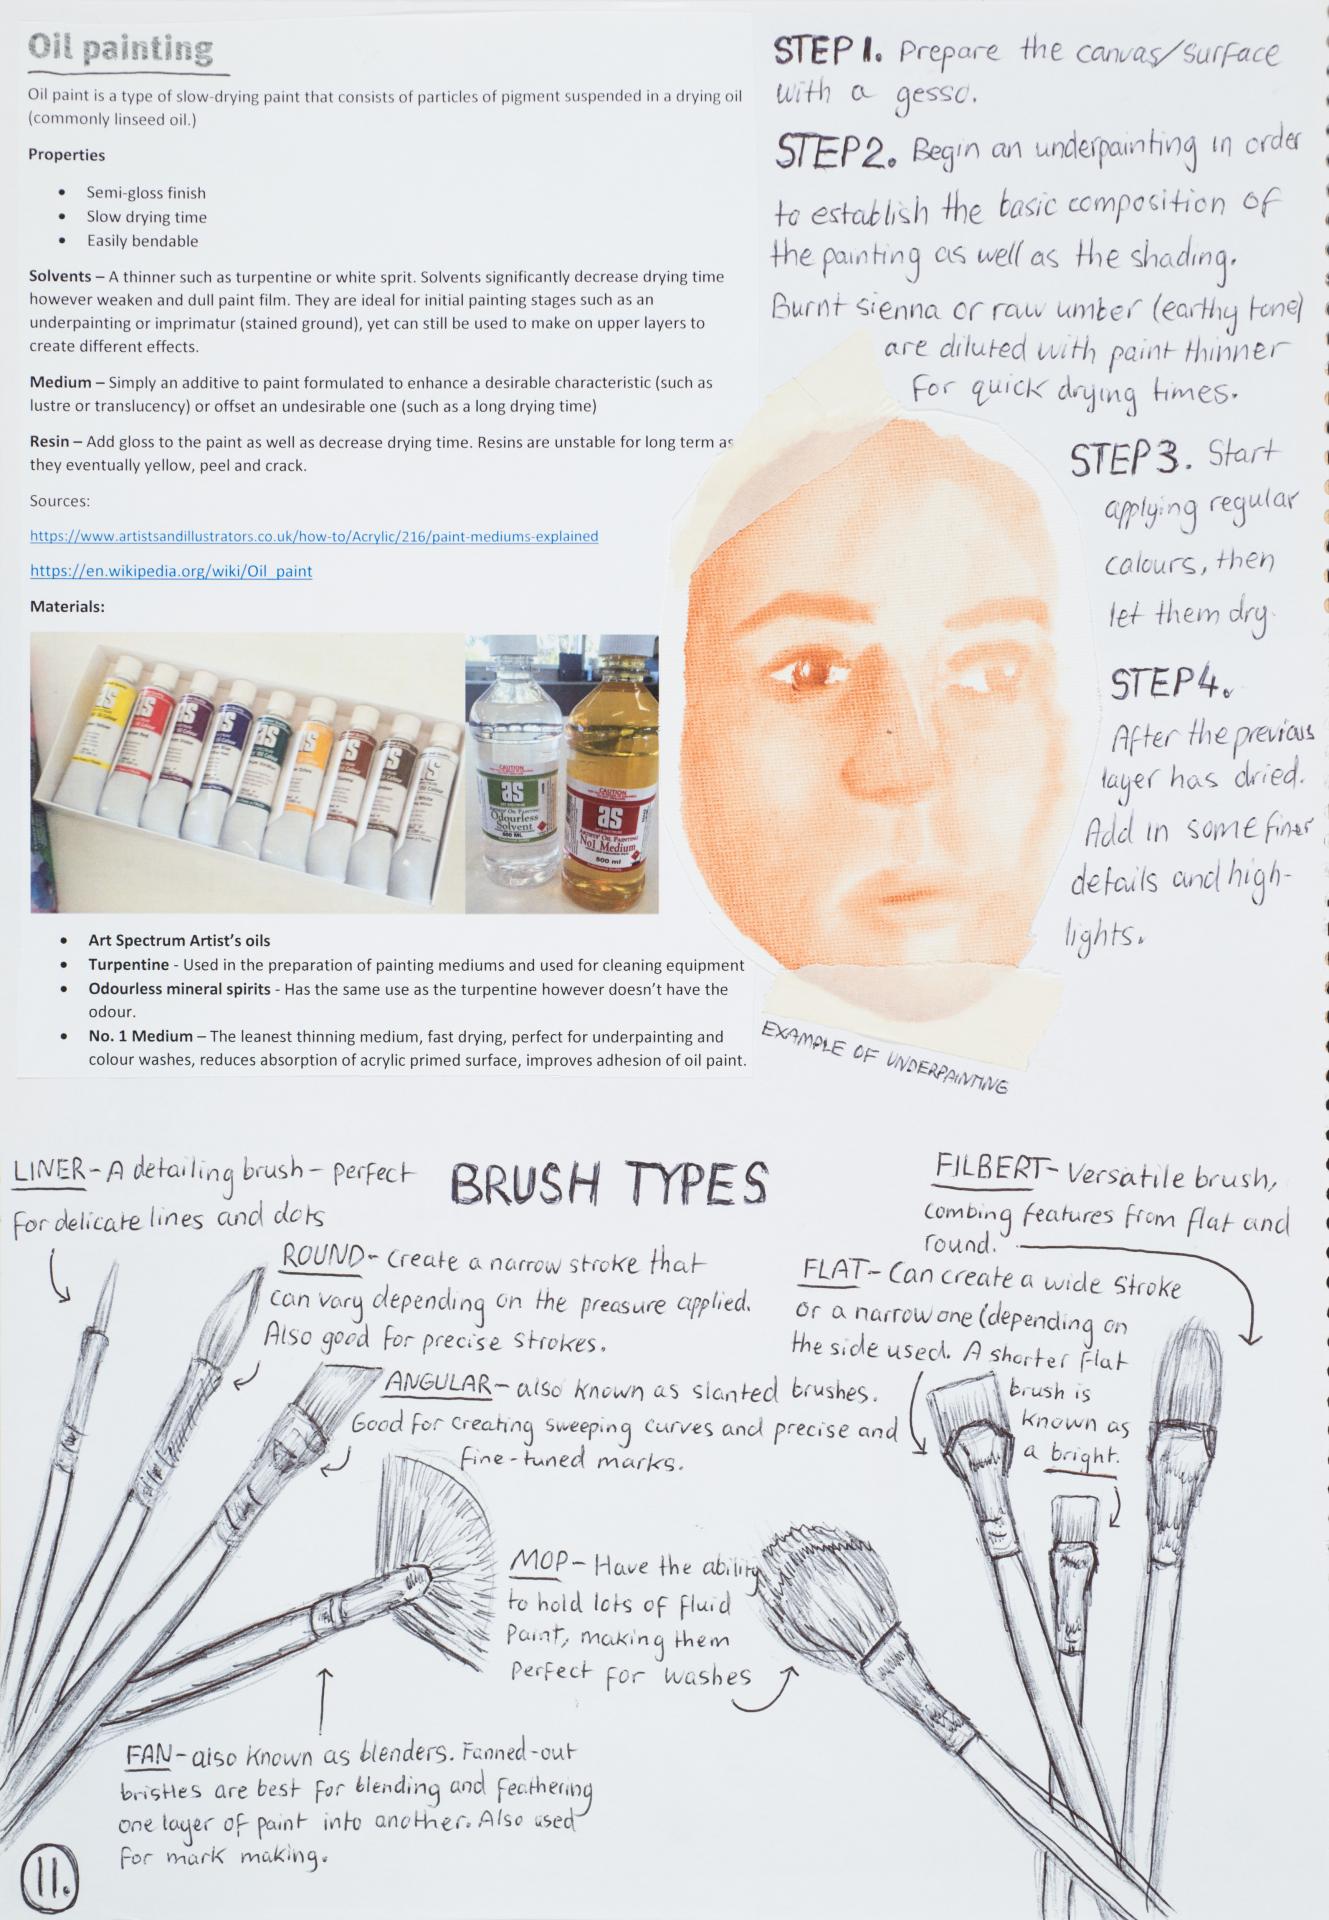 Oil painting
Oil paint is a type of slow-drying paint that consists of particles of pigment suspended in a drying oil
(commonly linseed oil.)
Properties
• Semi-gloss finish
• Slow drying time
• Easily bendable
Solvents – A thinner such as turpentine or white sprit. Solvents significantly decrease drying time
however weaken and dull paint film. They are ideal for initial painting stages such as an
underpainting or imprimatur (stained ground), yet can still be used to make on upper layers to
create different effects.
Medium – Simply an additive to paint formulated to enhance a desirable characteristic (such as
lustre or translucency) or offset an undesirable one (such as a long drying time)
Resin – Add gloss to the paint as well as decrease drying time. Resins are unstable for long term as
they eventually yellow, peel and crack.
Sources:
https://www.artistsandillustrators.co.uk/how-to/Acrylic/216/paint-mediums-explained
https://en.wikipedia.org/wiki/Oil_paint
Materials:
as
as
as
as
as
as
CAUTION
as
Odourless
Solvent
500 ML
CAUTION
as
ARTISTS' OIL PAINTING
No1 Medium
500 ml
• Art Spectrum Artist's oils
• Turpentine - Used in the preparation of painting mediums and used for cleaning equipment
• Odourless mineral spirits - Has the same use as the turpentine however doesn't have the
odour.
• No. 1 Medium – The leanest thinning medium, fast drying, perfect for underpainting and
colour washes, reduces absorption of acrylic primed surface, improves adhesion of oil paint.
STEP 1. Prepare the canvas/surface
with a gesso.
STEP 2. Begin an underpainting in order
to establish the basic composition of
the painting as well as the shading.
Burnt sienna or raw umber (earthy tone)
are diluted with paint thinner
for quick drying times.
STEP 3. Start
applying regular
colours, then
let them dry.
STEP 4.
After the previous
layer has dried.
Add in some finer
details and high-
lights.
EXAMPLE OF UNDERPAINTING
BRUSH TYPES
LINER - A detailing brush - perfect
for delicate lines and dots
ROUND - Create a narrow stroke that
can vary depending on the preasure applied.
Also good for precise strokes.
ANGULAR - also known as slanted brushes.
Good for creating sweeping curves and precise and
fine-tuned marks.
FILBERT - Versatile brush,
combing features from flat and
round.
FLAT - Can create a wide stroke
or a narrow one (depending on
the side used. A shorter flat
brush is
known as
a bright.
MOP - Have the ability
to hold lots of fluid
paint, making them
perfect for washes
FAN - also known as blenders. Fanned-out
bristles are best for blending and feathering
one layer of paint into another. Also used
for mark making.
11.